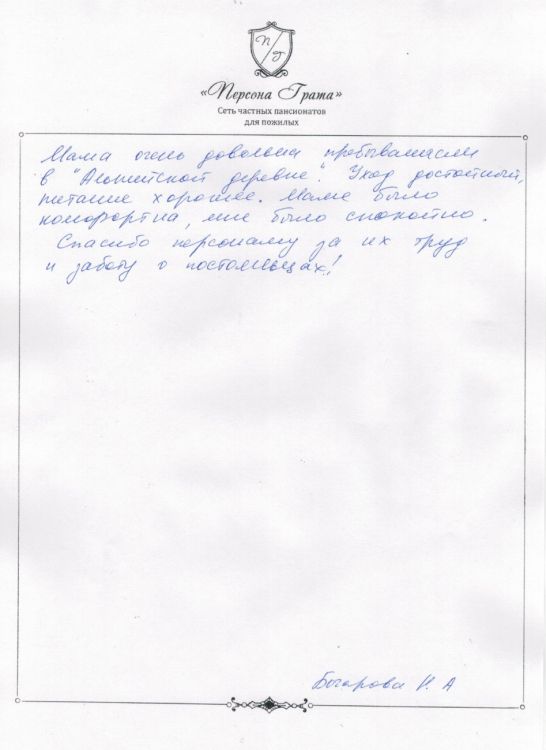 П/Г
«Персона Грата»
Сеть частных пансионатов
для пожилых
Мама очень довольна пребыванием
в "Альпийской деревне". Уход достойный,
питание хорошее. Маме было
комфортна, мне было спокойно.
Спасибо персоналу за их труд
и заботу о постояльцах!
Бочарова Н. А